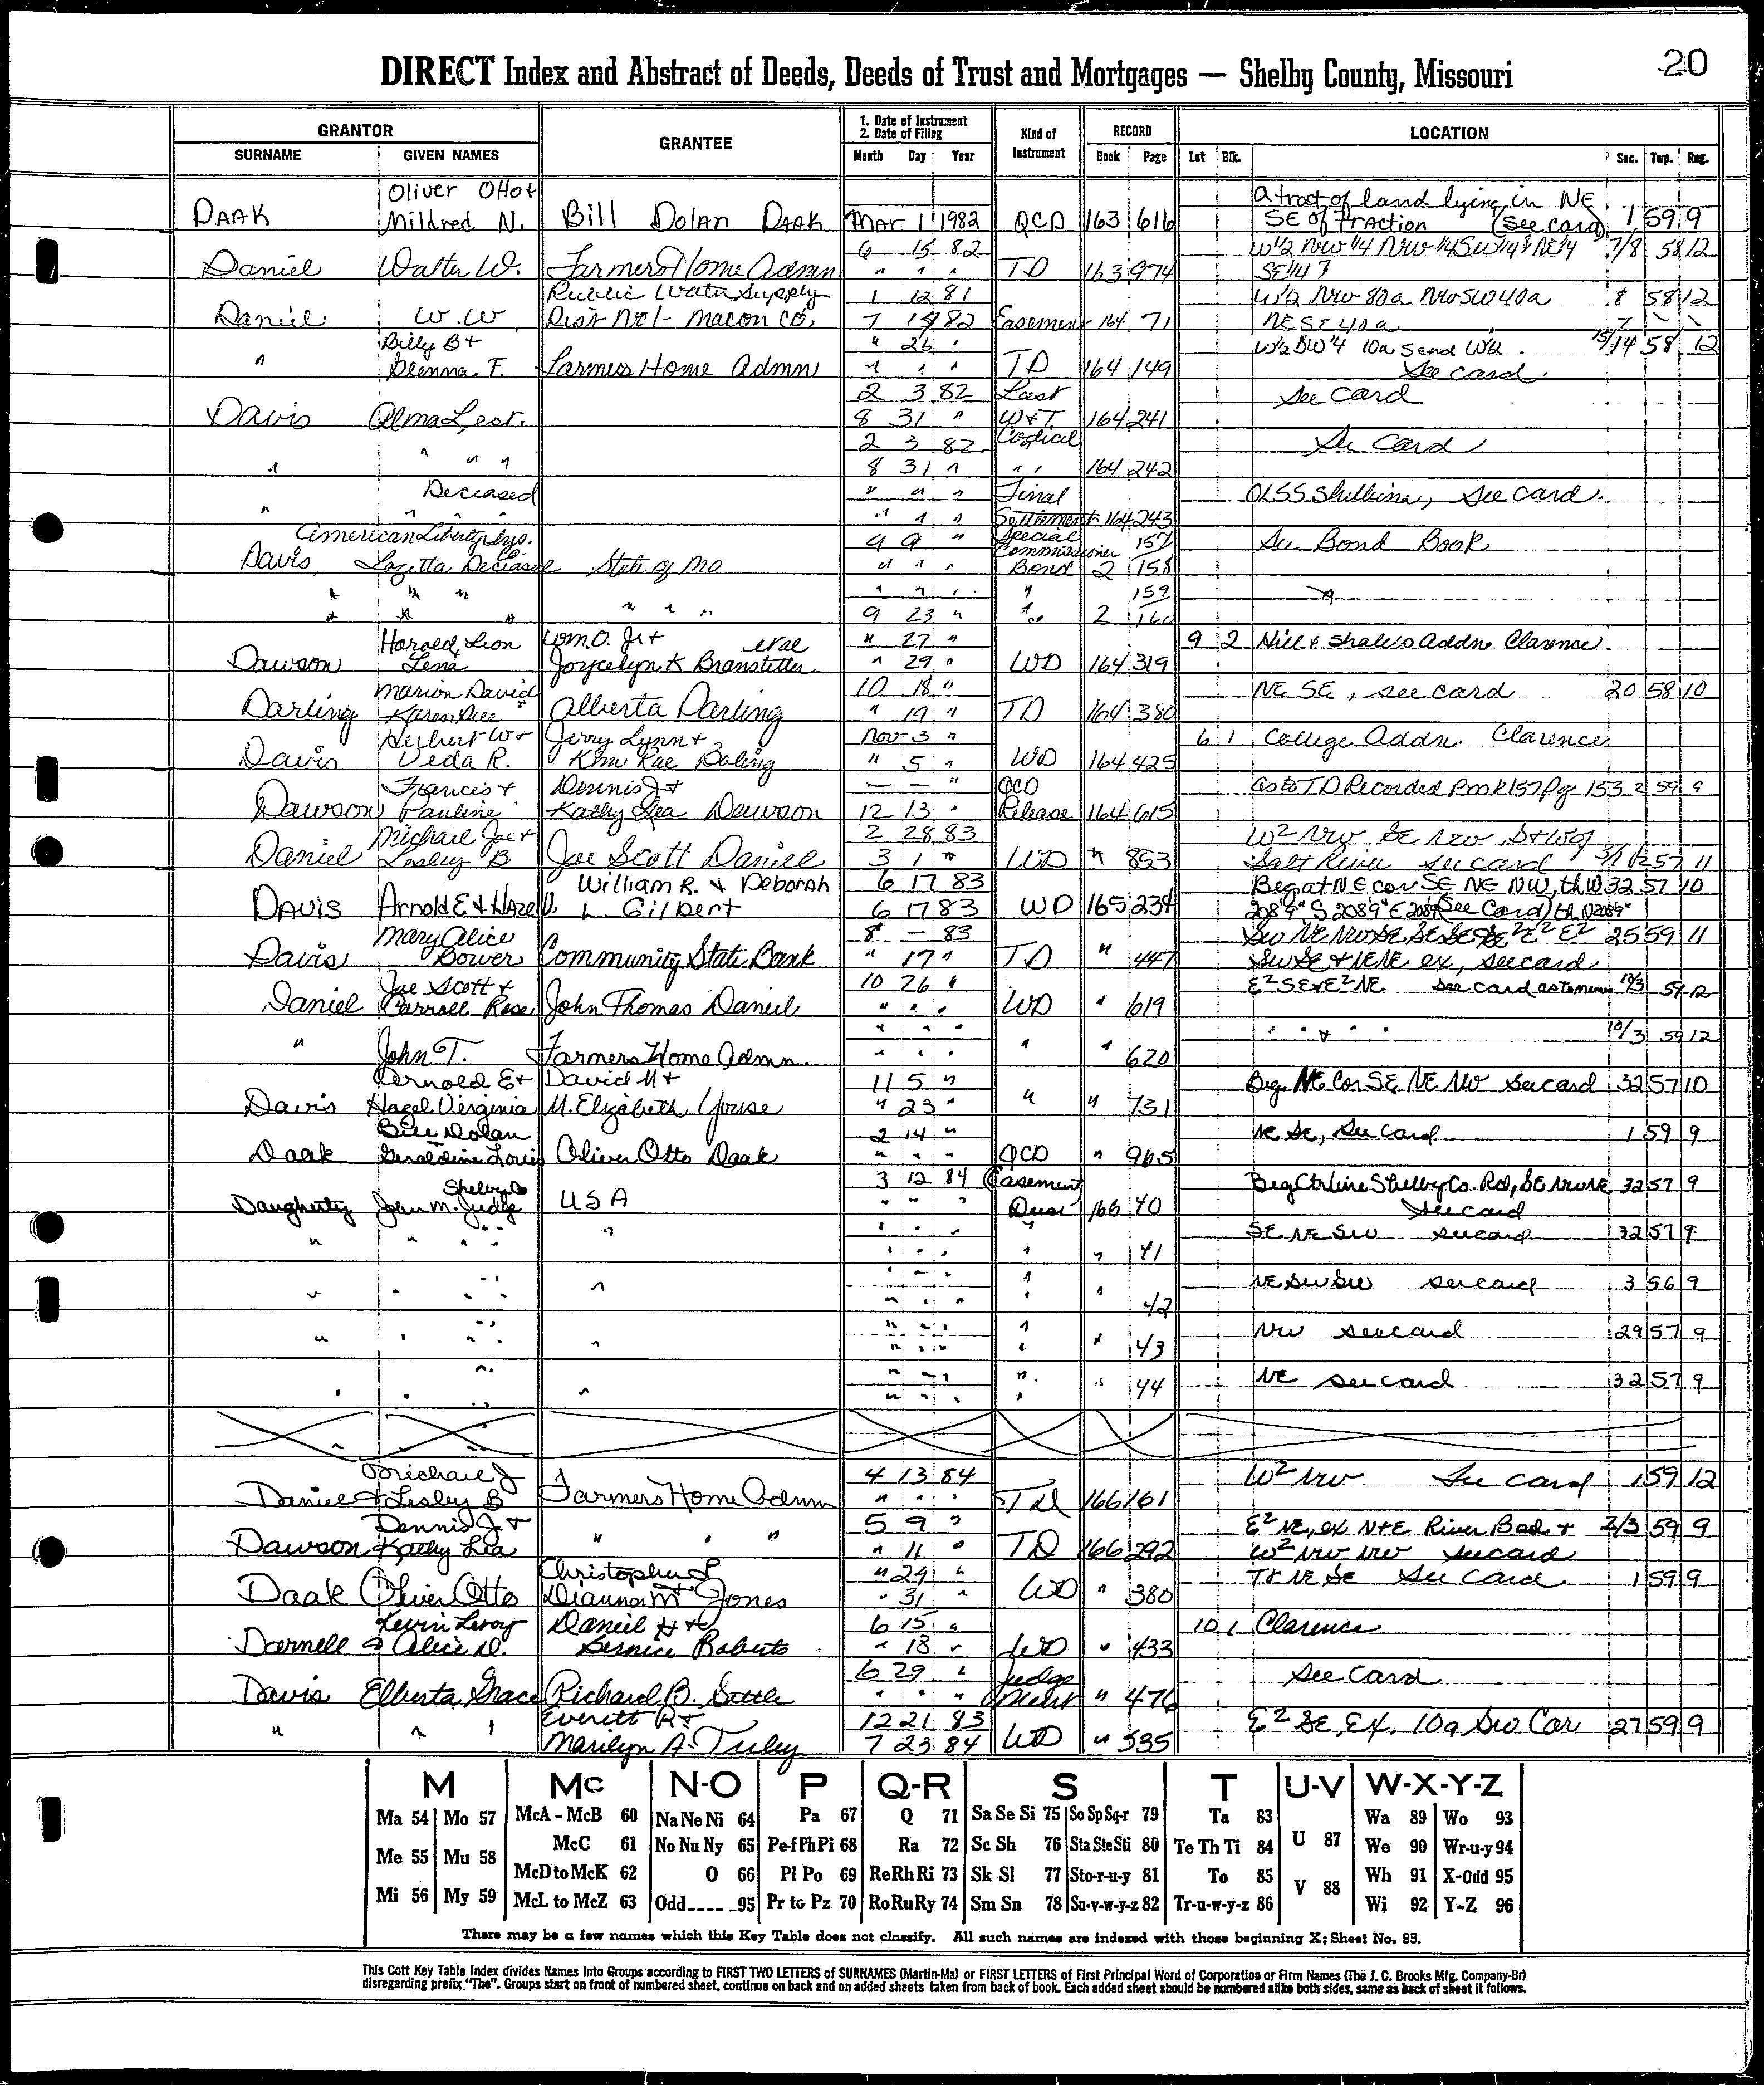 20
DIRECT Index and Abstract of Deeds, Deeds of Trust and Mortgages — Shelby County, Missouri
GRANTOR GRANTEE 1. Date of Instrument 2. Date of Filing Kind of Instrument RECORD LOCATION
SURNAME GIVEN NAMES Month Day Year Book Page Lot Blk. Sec. Twp. Rng.
Oliver Otto + a tract of land lying in NE
DAAK Mildred N. Bill Dolan DAAK Mar 1 1982 QCD 163 616 SE of fraction (see card) 1 59 9
6 15 82 W1/2 NW 1/4 NW 1/4 SW 1/4 & NE 1/4 7/8 58 12
Daniel Walter W. Farmers Home Admn " " " TD 163 974 SE 1/4 7
Public Water Supply 1 12 81 W1/2 NW 80a NW SW 40a 8 58 12
Daniel W.W. Dist No 1 - Macon Co. 7 19 82 Easement 164 71 NE SE 40a 7 " "
Billy B + " 26 " W1/2 SW 1/4 10a S end W1/2 15/14 58 12
" Glenna F. Farmers Home Admn " " " TD 164 149 See card
2 3 82 Last See card
Davis Alma L, est. 8 31 " W & T. 164 241
2 3 82 Codicil See Card
" " " " 8 31 " " " 164 242
Deceased " " " Final OLSS Shelbina, see card.
" " " " " " " Settlement 164 243
American Liberty Ins. Co. 9 9 " Special Commissioner 157 See Bond Book
Davis, Lozetta Deceased State of Mo " " " Bond 2 158
" " " " " " " 159 "
" " " " " " 9 23 " " 2 160
Harold Leon Wm. O. Jr + etal " 27 " 9 2 Hill & Shales Addn Clarence
Dawson Lena Joycelyn K Branstetter " 29 " WD 164 319
Marion David 10 18 " NE SE, see card 20 58 10
Darling Karen Dee + Alberta Darling " 19 " TD 164 380
Herbert W + Jerry Lynn + Nov 3 " 6 1 College Addn. Clarence
Davis Veda R. Kim Rae Boling " 5 " WD 164 425
Francis + Dennis J + — — " QCD as to TD Recorded Book 157 Pg 153 2 59 9
Dawson Pauline Kathy Lea Dawson 12 13 " Release 164 615
Michael Joe + 2 28 83 W2 NW SE NW, S & W of
Daniel Lesley B Joe Scott Daniel 3 1 " WD " 853 Salt River see card 57 11
William R. & Deborah 6 17 83 Beg at NE cor SE NE NW, th W 32 57 10
DAVIS Arnold E & Hazel V. L. Gilbert 6 17 83 WD 165 234 208'9" S 208'9" E 208'9" (See Card) th N 208'9"
Mary Alice 8 — 83 25 59 11
Davis Bower Community State Bank " 17 " TD " 447 SW SE & NE NE ex, see card
Joe Scott + 10 26 " E2 SE & E2 NE see card 10/3 59 12
Daniel Carroll Rose John Thomas Daniel " " " WD " 619
" " " " " " " 10/3 59 12
" John T. Farmers Home Admn. " " " " " 620
Arnold E + David M + 11 5 " Beg NE Cor SE NE NW see card 32 57 10
Davis Hazel Virginia M. Elizabeth Youse " 23 " " " 731
Bill Dolan 2 14 " NE SE, see card 1 59 9
Daak Geraldine Louis Oliver Otto Daak " " " QCD " 965
Shelby Co 3 12 84 Easement Beg Ctr line Shelby Co. Rd, SE NW NE 32 57 9
Daugherty John M. Judge USA " " " Deed 166 40 see card
" " " " " " " " SE NE SW see card 32 57 9
" " " " " 41
" " " " " " " NE SW SW see card 3 56 9
" " " " " 42
" " " " " " " NW see card 29 57 9
" " " " " 43
" " " " " " " NE see card 32 57 9
" " " " " 44
Michael J 4 13 84 W2 NW See card 1 59 12
Daniel & Lesley B Farmers Home Admn " " " TD 166 161
Dennis J + " " " 5 9 " E2 NE, ex N & E River Bed + 2/3 59 9
Dawson Kathy Lea " 11 " TD 166 292 W2 NW NW see card
Christopher L " 29 " Tr NE SE See Card 1 59 9
Daak Oliver Otto Dianna M Jones " 31 " WD " 380
Kevin Leroy Daniel H + 6 15 " 10 1 Clarence
Darnell & Alice D. Bernice Roberts " 18 " WD " 433
6 29 " Judge See Card
Davis Elberta Grace Richard B. Settle " " " " 476
Everett R + 12 21 83 E2 SE, Ex. 10a SW Cor 27 59 9
" " " Marilyn A. Tuley 7 23 84 WD " 535
M Mc N-O P Q-R S T U-V W-X-Y-Z
Ma 54 Mo 57 McA - McB 60 Na Ne Ni 64 Pa 67 Q 71 Sa Se Si 75 So Sp Sq-r 79 Ta 83 U 87 Wa 89 Wo 93
Me 55 Mu 58 McC 61 No Nu Ny 65 Pe-f Ph Pi 68 Ra 72 Sc Sh 76 Sta Ste Sti 80 Te Th Ti 84 We 90 Wr-u-y 94
McD to McK 62 O 66 Pl Po 69 Re Rh Ri 73 Sk Sl 77 Sto-r-u-y 81 To 85 V 88 Wh 91 X-Odd 95
Mi 56 My 59 McL to McZ 63 Odd 95 Pr to Pz 70 Ro Ru Ry 74 Sm Sn 78 Su-v-w-y-z 82 Tr-u-w-y-z 86 Wi 92 Y-Z 96
There may be a few names which this Key Table does not classify. All such names are indexed with those beginning X; Sheet No. 95.
This Cott Key Table Index divides Names Into Groups according to FIRST TWO LETTERS of SURNAMES (Martin-Ma) or FIRST LETTERS of First Principal Word of Corporation or Firm Names (The J. C. Brooks Mfg. Company-Br)
disregarding prefix, "The". Groups start on front of numbered sheet, continue on back and on added sheets taken from back of book. Each added sheet should be numbered alike both sides, same as back of sheet it follows.